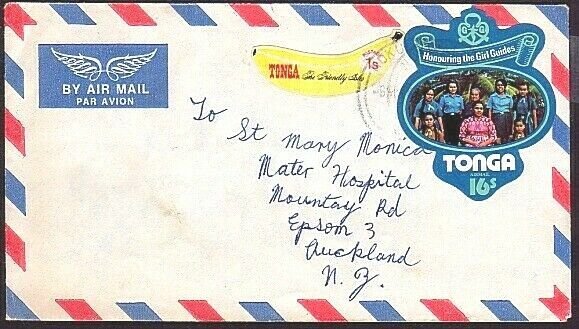 BY AIR MAIL
PAR AVION
TONGA The Friendly Isles
1s
Honouring the Girl Guides
TONGA
AIRMAIL
16s
To
St Mary Monica
Mater Hospital
Mountay Rd
Epsom 3
Auckland
N. Z.